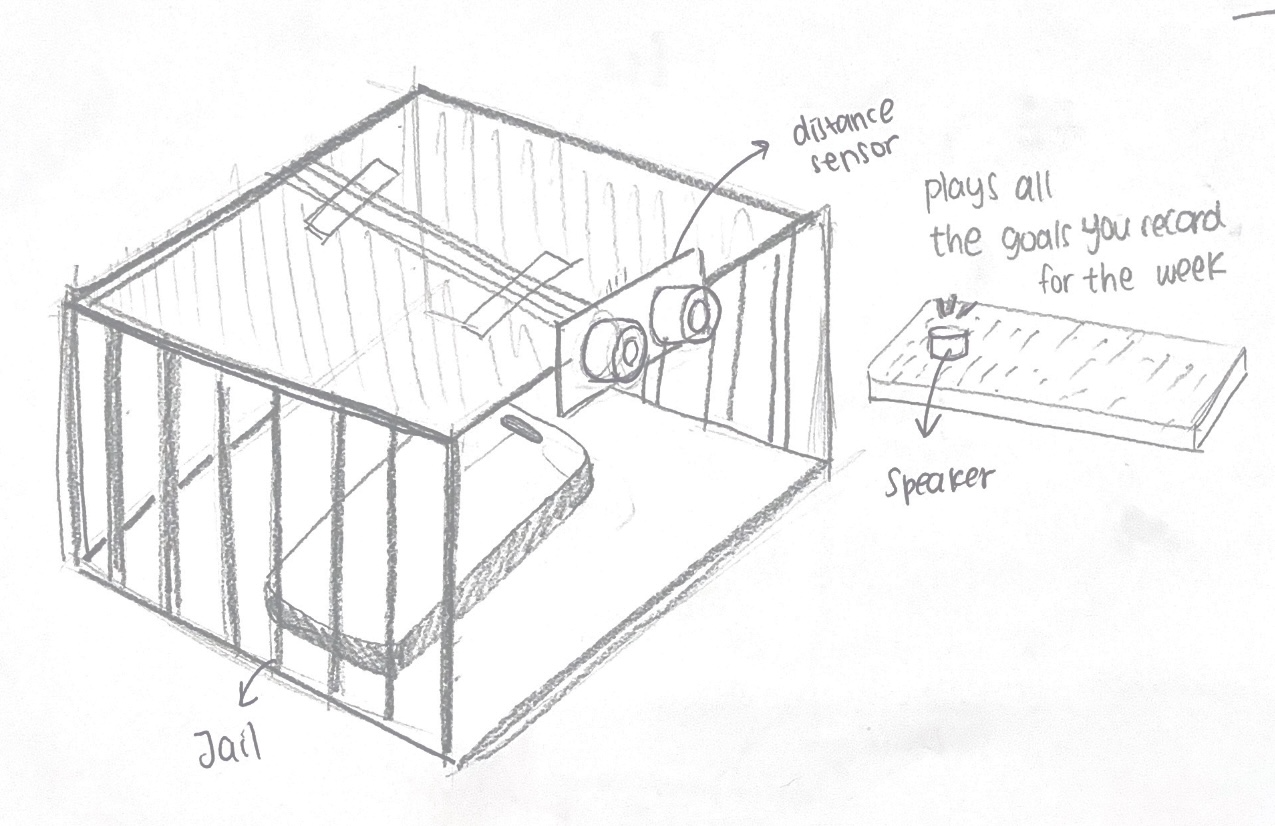 distance
sensor
plays all
the goals you record
for the week
Speaker
Jail